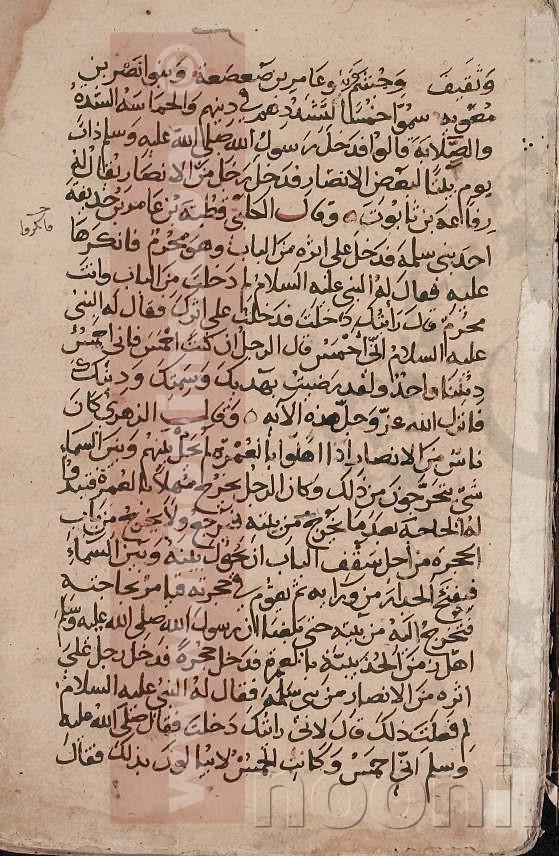 وثقيف وجشم وعامر بن صعصعة وبنوا نصر بن
معوية سموا حمسا لتشددهم في دينهم والحماسة الشدة
والصلابة قالوا فدخل رسول الله صلى الله عليه وسلم ذات
يوم بيتا لبعض الانصار فدخل رجل من الانصار يقال له
رفاعة بن تابوت وقال الكلبي قطبة بن عامر بن حديقة
احد بني سلمة فدخل على اثره من الباب وهو محرم فانكروا
عليه فقال له النبي عليه السلام لم دخلت من الباب وانت
محرم قال رأيتك دخلت فدخلت على اثرك فقال له النبي
عليه السلام اني احمس قال الرجل ان كنت احمس فاني احمس
ديننا واحد ولقد رضيت بهديك وسمتك ودينك
فانزل الله عز وجل هذه الآية وقال الزهري كان
ناس من الانصار اذا اهلوا بالعمرة لم يحل بينهم وبين السماء
شي يتحرجون من ذلك وكان الرجل يخرج مهلا بالعمرة فتبدوا
له الحاجة بعد ما يخرج من بيته فيرجع ولا يدخل من باب
الحجرة من اجل سقف الباب ان يحول بينه وبين السماء
فيفتح الجدار من ورايه ثم يقوم في حجرته فيامر بحاجته
فتخرج اليه من بيته حتى بلغنا ان رسول الله صلى الله عليه وسلم
اهل زمن الحديبية بالعمرة فدخل حجرة فدخل رجل على
اثره من الانصار من بني سلمة فقال له النبي عليه السلام
لم فعلت ذلك قال لاني رأيتك دخلت فقال صلى الله عليه
وسلم اني احمس وكانت الحمس لا يبالون بذلك فقال
فانكروا
noon